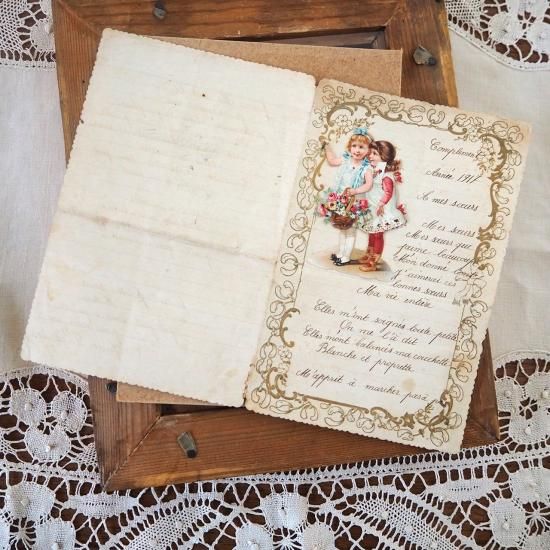 Compliment
Année 1917
A mes sœurs
Mes sœurs
Mes sœurs que
j'aime beaucoup
M'on donné
J'aimerai ces
bonnes sœurs
Ma vie entière
Elles m'ont soignés toute petite
On me l'a dit
Elles mont balancés ma couchette
Blanche et proprette
M'apprit à marcher